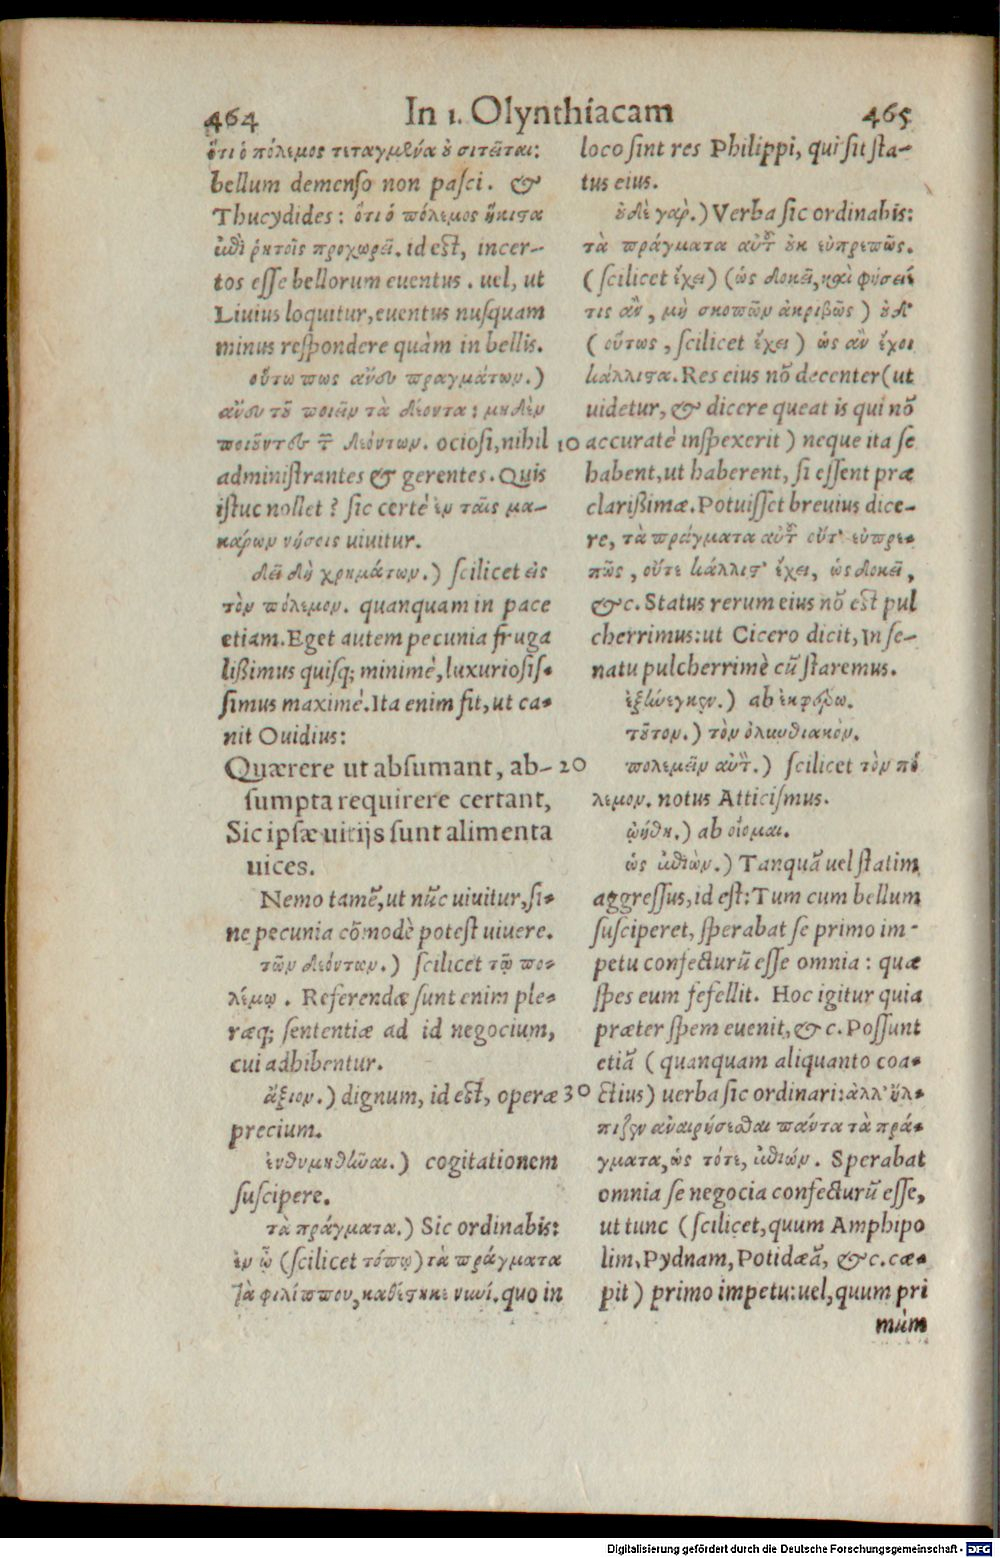 464
In 1. Olynthiacam
465
ὅτι ὁ πόλεμος τεταγμένα οὐ σιτεῖται:
bellum demenso non pasci. &
Thucydides: ὅτι ὁ πόλεμος ἥκιστα
ἐπὶ ῥητοῖς προχωρεῖ. id est, incer-
tos esse bellorum euentus. uel, ut
Liuius loquitur, euentus nusquam
minus respondere quàm in bellis.
οὕτω πως ἄνευ πραγμάτων.)
ἄνευ τοῦ ποιεῖν τὰ δέοντα: μηδὲν
ποιοῦντες τῶν δεόντων. ociosi, nihil
administrantes & gerentes. Quis
istuc nollet? sic certè ἐν ταῖς μα-
κάρων νήσοις uiuitur.
δεῖ δὴ χρημάτων.) scilicet εἰς
τὸν πόλεμον. quanquam in pace
etiam. Eget autem pecunia fruga
lißimus quisq; minimè, luxuriosis-
simus maximè. Ita enim fit, ut ca-
nit Ouidius:
Quærere ut absumant, ab-
sumpta requirere certant,
Sic ipsæ uitijs sunt alimenta
uices.
Nemo tamẽ, ut nũc uiuitur, si-
ne pecunia cõmodè potest uiuere.
τῶν δεόντων.) scilicet τῷ πο-
λέμῳ. Referendæ sunt enim ple-
ræq; sententiæ ad id negocium,
cui adhibentur.
ἄξιον.) dignum, id est, operæ
precium.
ἐνθυμηθῆναι.) cogitationem
suscipere.
τὰ πράγματα.) Sic ordinabis:
ἐν ᾧ (scilicet τόπῳ) τὰ πράγματα
τὰ φιλίππου, καθέστηκε νυνί. quo in
10
20
30
loco sint res Philippi, qui sit sta-
tus eius.
οὐδὲ γαρ.) Verba sic ordinabis:
τὰ πράγματα αὐτῷ οὐκ εὐπρεπῶς.
(scilicet ἔχει) (ὡς δοκεῖ, καὶ φήσειέ
τις ἂν, μὴ σκοπῶν ἀκριβῶς) οὐδ'
(οὕτως, scilicet ἔχει) ὡς ἂν ἔχοι
κάλλιστα. Res eius nõ decenter (ut
uidetur, & dicere queat is qui nõ
accuratè inspexerit) neque ita se
habent, ut haberent, si essent præ
clarißimæ. Potuisset breuius dice-
re, τὰ πράγματα αὐτῷ οὔτ' εὐπρε-
πῶς, οὔτε κάλλιστ' ἔχει, ὡς δοκεῖ,
&c. Status rerum eius nõ est pul
cherrimus: ut Cicero dicit, In se-
natu pulcherrimè cũ staremus.
ἐξήνεγκεν.) ab ἐκφέρω.
τοῦτον.) τὸν ὀλυνθιακόν.
πολεμεῖν αὐτὸν.) scilicet τὸν πό
λεμον. notus Atticismus.
ᾠήθη.) ab οἴομαι.
ὡς ἐπιὼν.) Tanquã uel statim
aggressus, id est: Tum cum bellum
susciperet, sperabat se primo im-
petu confecturũ esse omnia: quæ
spes eum fefellit. Hoc igitur quia
præter spem euenit, &c. Possunt
etiã (quanquam aliquanto coa-
ctius) uerba sic ordinari: ἀλλ' ἤλ-
πιζεν ἀναιρήσεσθαι πάντα τὰ πρά-
γματα, ὡς τότε, ἐπιών. Sperabat
omnia se negocia confecturũ esse,
ut tunc (scilicet, quum Amphipo
lim, Pydnam, Potidæã, &c. cæ-
pit) primo impetu: uel, quum pri
mùm
Digitalisierung gefördert durch die Deutsche Forschungsgemeinschaft - DFG